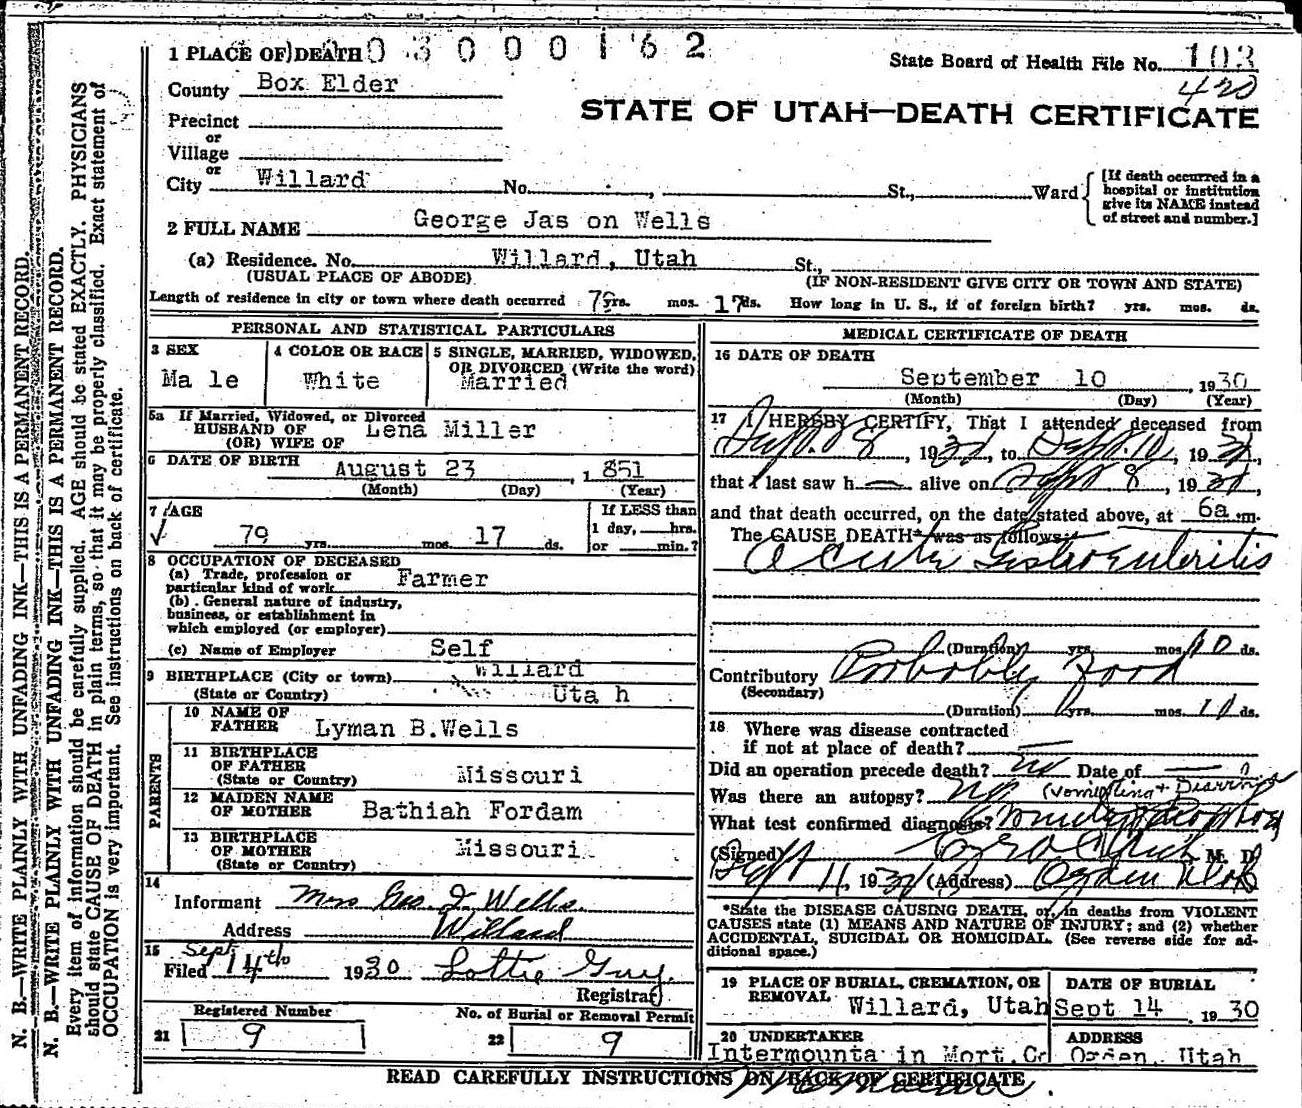 1 PLACE OF DEATH 0 3 0 0 0 1 6 2
State Board of Health File No. 103
420
County Box Elder
STATE OF UTAH—DEATH CERTIFICATE
Precinct
or
Village
or
City Willard No. St., Ward
[If death occurred in a hospital or institution give its NAME instead of street and number.]
2 FULL NAME George Jas on Wells
(a) Residence. No. Willard, Utah St.,
(USUAL PLACE OF ABODE) (IF NON-RESIDENT GIVE CITY OR TOWN AND STATE)
Length of residence in city or town where death occurred 79 yrs. mos. 17 ds. How long in U. S., if of foreign birth? yrs. mos. ds.
PERSONAL AND STATISTICAL PARTICULARS
3 SEX 4 COLOR OR RACE 5 SINGLE, MARRIED, WIDOWED,
OR DIVORCED (Write the word)
Ma le White Married
5a If Married, Widowed, or Divorced
HUSBAND OF
(OR) WIFE OF Lena Miller
6 DATE OF BIRTH August 23, 1851
(Month) (Day) (Year)
7 AGE If LESS than
79 yrs. mos. 17 ds. 1 day, hrs.
or min.?
8 OCCUPATION OF DECEASED
(a) Trade, profession or
particular kind of work Farmer
(b) General nature of industry,
business, or establishment in
which employed (or employer)
(c) Name of Employer Self
9 BIRTHPLACE (City or town) Willard
(State or Country) Uta h
PARENTS
10 NAME OF
FATHER Lyman B.Wells
11 BIRTHPLACE
OF FATHER
(State or Country) Missouri
12 MAIDEN NAME
OF MOTHER Bathiah Fordam
13 BIRTHPLACE
OF MOTHER
(State or Country) Missouri
14
Informant Mrs Geo. J. Wells.
Address Willard
15 Filed Sept 14th 1930 Lottie Guy.
Registrar
Registered Number No. of Burial or Removal Permit
21 9 22 9
MEDICAL CERTIFICATE OF DEATH
16 DATE OF DEATH
September 10, 1930
(Month) (Day) (Year)
17 I HEREBY CERTIFY, That I attended deceased from
Sept. 8, 1930, to Sept. 10, 1930,
that I last saw h— alive on Sept 8, 1930,
and that death occurred, on the date stated above, at 6a.m.
The CAUSE DEATH* was as follows:
Acute Gastroenteritis
(Duration) yrs. mos. 10 ds.
Contributory Probably Food
(Secondary)
(Duration) yrs. mos. 10 ds.
18 Where was disease contracted
if not at place of death? —
Did an operation precede death? no Date of —
Was there an autopsy? No (Vomiting + Diarrhea
What test confirmed diagnosis?
(Signed) M. D.
Sept 11, 1930 (Address) Ogden Utah
*State the DISEASE CAUSING DEATH, or, in deaths from VIOLENT
CAUSES state (1) MEANS AND NATURE OF INJURY; and (2) whether
ACCIDENTAL, SUICIDAL OR HOMICIDAL. (See reverse side for ad-
ditional space.)
19 PLACE OF BURIAL, CREMATION, OR REMOVAL DATE OF BURIAL
Willard, Utah Sept 14. 1930
20 UNDERTAKER ADDRESS
Intermounta in Mort.Co Ogden, Utah
READ CAREFULLY INSTRUCTIONS ON BACK OF CERTIFICATE
N. B.—WRITE PLAINLY WITH UNFADING INK—THIS IS A PERMANENT RECORD.
N. B.—WRITE PLAINLY WITH UNFADING INK—THIS IS A PERMANENT RECORD.
Every item of information should be carefully supplied. AGE should be stated EXACTLY. PHYSICIANS
should state CAUSE OF DEATH in plain terms, so that it may be properly classified. Exact statement of
OCCUPATION is very important. See instructions on back of certificate.